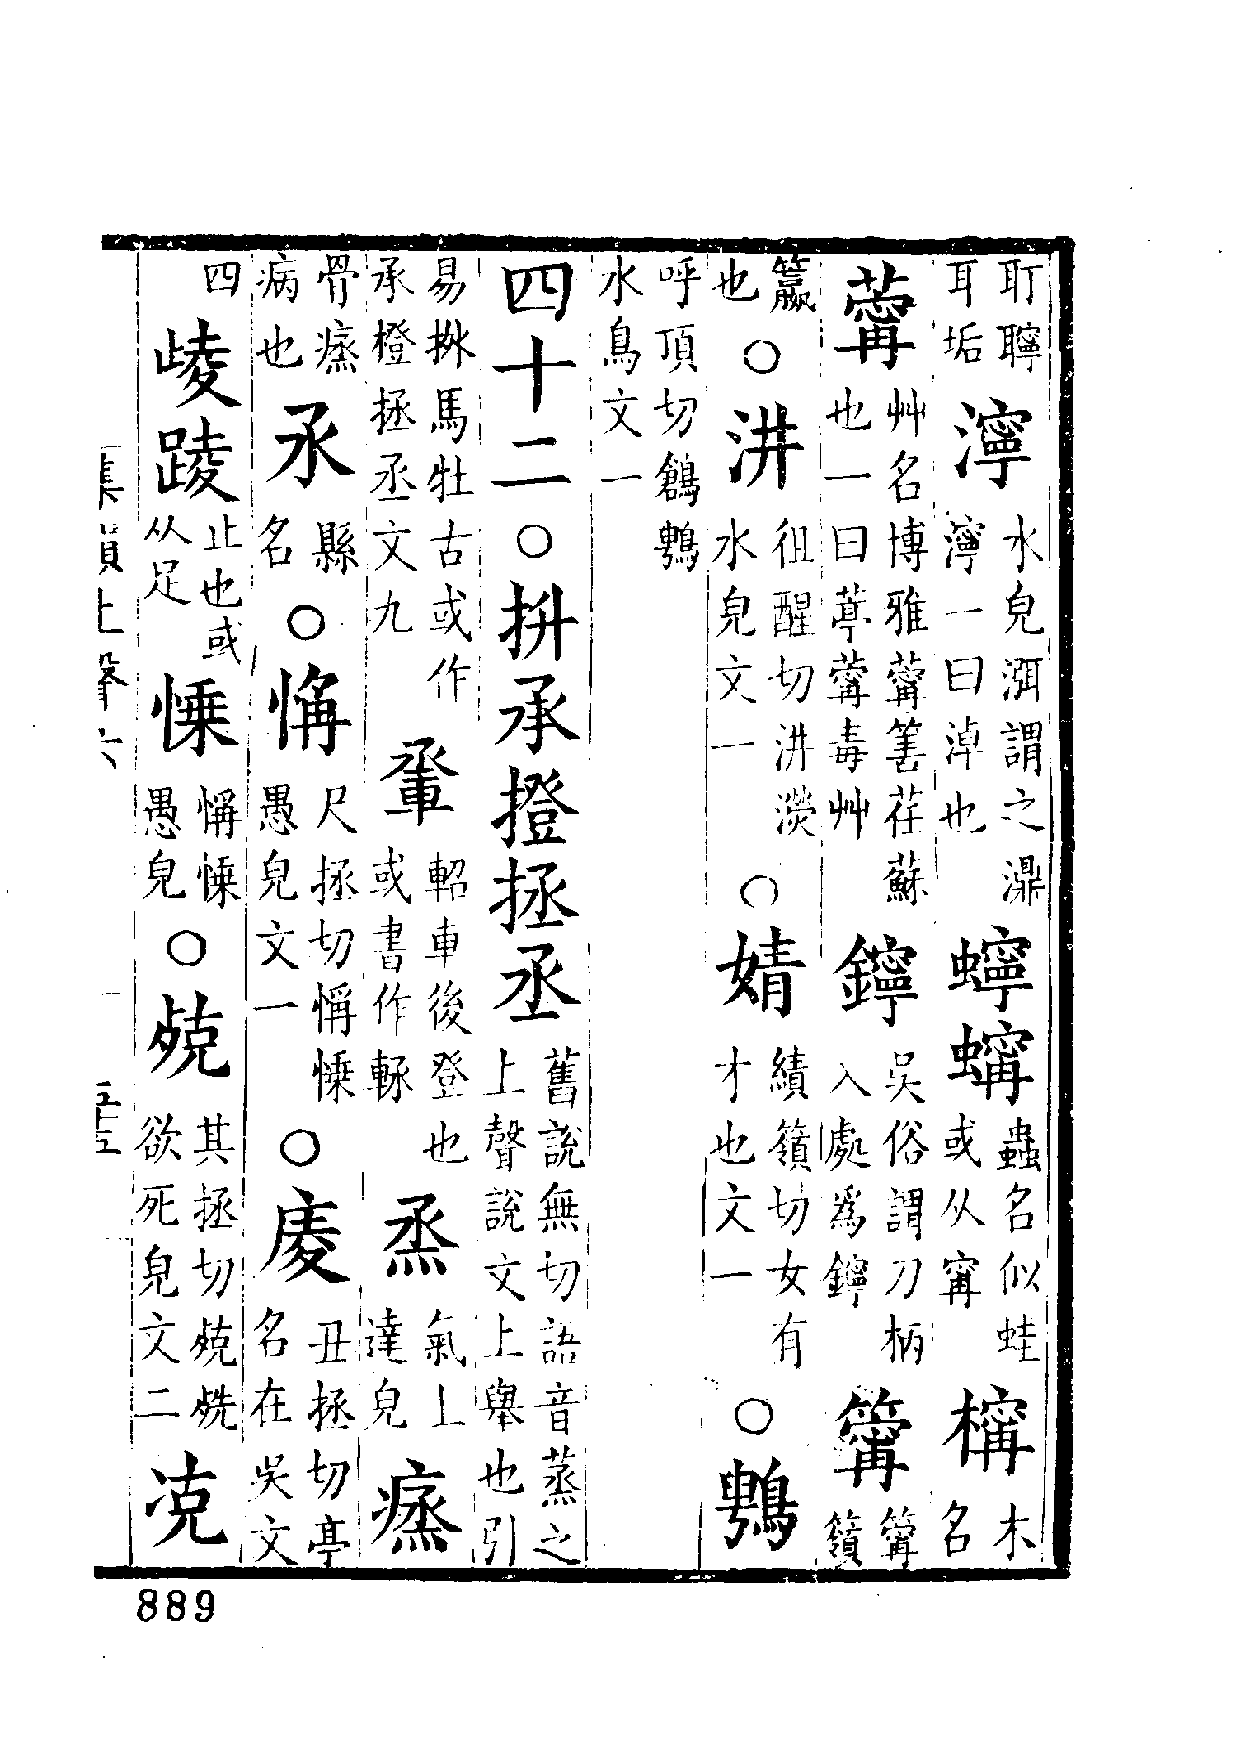 耵聹耳垢 濘 水皃濔謂之濎濘一曰淖也 蟲名似蛙或从甯 橣 木名
艸名博雅荏蘇也一曰葶毒艸 鑏 吳俗謂刀柄入處爲鑏
籯也○汫 徂醒切汫濙水皃文一○婧 績領切女有才也文一○鶙
呼頂切鶬水鳥文一
四十二○抍承撜拯丞 舊說無切語音蒸之上聲說文上舉也引
易抍馬牡古或作承橙拯丞文九 軺車後登也或書作 烝 氣上達皃
骨病也 氶 縣名○ 尺拯切愚皃文一○庱 丑拯切亭名在吳文
四 踜 止也或从足 愚皃○殑 其拯切殑欲死皃文二
集韻上聲六 五十五
889